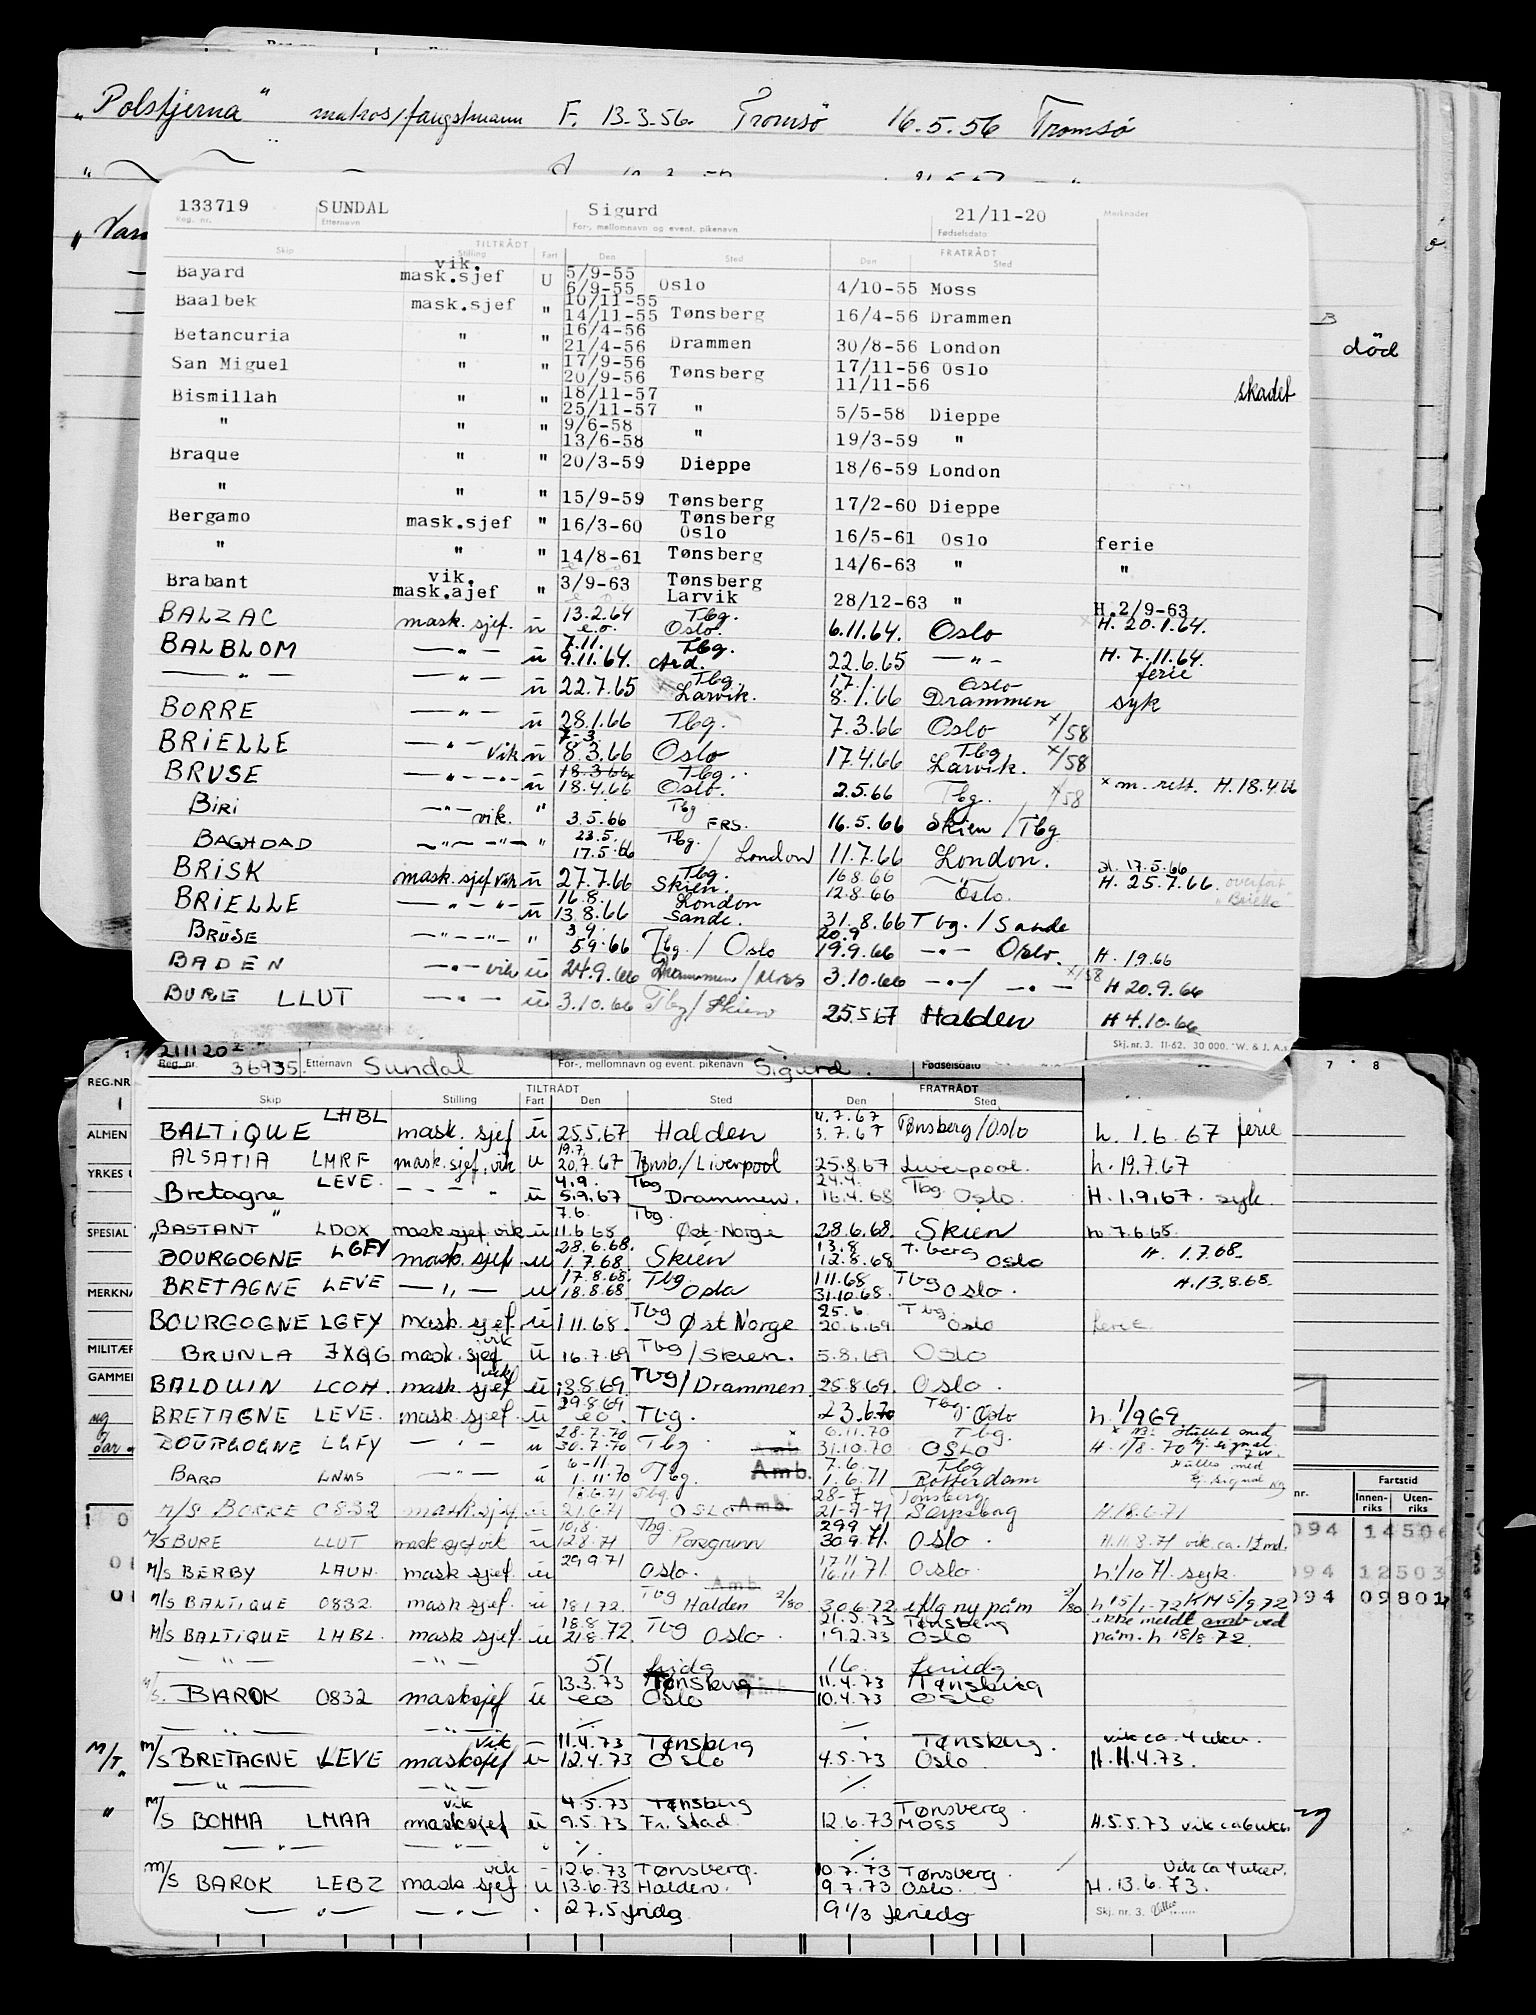 "Polstjerna" matros/fangstmann F. 13.3.56. Tromsö 16.5.56 Tromsö
133719 SUNDAL Sigurd 21/11-20
Reg. nr. Etternavn For-, mellomnavn og event. pikenavn Fødselsdato Merknader
TILTRÅDT FRATRÅDT
Skip Stilling Fart Den Sted Den Sted
død
skadet
vik. 5/9-55
Bayard mask.sjef U 6/9-55 Oslo 4/10-55 Moss
10/11-55
Baalbek mask.sjef " 14/11-55 Tønsberg 16/4-56 Drammen
16/4-56
Betancuria " " 21/4-56 Drammen 30/8-56 London
17/9-56 17/11-56 Oslo
San Miguel " " 20/9-56 Tønsberg 11/11-56
18/11-57
Bismillah " " 25/11-57 " 5/5-58 Dieppe
9/6-58
" " " 13/6-58 " 19/3-59 "
Braque " " 20/3-59 Dieppe 18/6-59 London
" " " 15/9-59 Tønsberg 17/2-60 Dieppe
Tønsberg
Bergamo mask.sjef " 16/3-60 Oslo 16/5-61 Oslo ferie
" " " 14/8-61 Tønsberg 14/6-63 " "
vik. Tønsberg
Brabant mask.ajef " 3/9-63 Larvik 28/12-63 " H.2/9-63
13.2.64 Tbg.
BALZAC mask. sjef. u e.o. Oslo. 6.11.64. Oslo H. 20.1.64.
7.11. Tbg.
BALBLOM — " — u 9.11.64. Ard. 22.6.65 — " — H. 7.11.64.
ferie
Tbg. 17.1. Oslo
— " — — " — u 22.7.65 Larvik. 8.1.66 Drammen syk
BORRE — " — u 28.1.66 Tbg. 7.3.66 Oslo x/58
7-3. Tbg
BRIELLE — " — vik u 8.3.66 Oslo 17.4.66 Larvik. x/58
18.3.66x Tbg.
BRUSE — " — " — u 18.4.66 Oslo. 2.5.66 Tbg. x/58 x m. rett. H.18.4.66
BIRI — " — vik. " 3.5.66 Tbg FRS. 16.5.66 Skien / Tbg
23.5.
BAGHDAD — " — " — " 17.5.66 Tbg. / London 11.7.66 London. H. 17.5.66
Tbg. 16.8.66
BRISK mask.sjef vik u 27.7.66 Skien. 12.8.66 Oslo. H. 25.7.66. overført "Brielle"
16.8. London
BRIELLE — " — " — u 13.8.66 Sande. 31.8.66 Tbg. / Sande
3.9. 20.9
BRUSE — " — " — " 5.9.66 Tbg. / Oslo 19.9.66 — " — Oslo. H. 1.9.66
BADEN — " — vik u 24.9.66 Drammen / Moss 3.10.66 — " — / — " — x/58 H 20.9.66
BURE LLUT — " — u 3.10.66 Tbg / Skien 25.5.67 Halden H 4.10.66
Skj. nr. 3. 11-62. 30 000. W. & J. A.s
211120
Reg. nr. 36935 Etternavn Sundal For-, mellomnavn og event. pikenavn Sigurd. Fødselsdato 7 8
TILTRÅDT FRATRÅDT
Skip Stilling Fart Den Sted Den Sted
REG.NR
ALMEN
YRKES
SPESIAL
MERKNA
MILITÆR
GAMMEL
4.7.67
BALTIQUE LHBL mask. sjef u 25.5.67 Halden 3.7.67 Tønsberg/Oslo h. 1.6.67 ferie
19.7.
ALSATIA LMRF mask.sjef. vik u 20.7.67 Tønsb./Liverpool 25.8.67 Liverpool. h. 19.7.67
4.9. Tbg 24.4.
Bretagne LEVE. — " — u 5.9.67 Drammen. 16.4.68 Tbg Oslo. H. 1.9.67. syk.
7.6. Tbg.
"BASTANT" LDOX mask.sjef. vik u 11.6.68 Øst-Norge 28.6.68. Skien h. 7.6.68.
28.6.68. 13.8. T.berg
BOURGOGNE LGFY mask. sjef u 1.7.68 Skien 12.8.68 Oslo H. 1.7.68.
17.8.68. Tbg 1.11.68 Tbg
BRETAGNE LEVE — " — u 18.8.68 Oslo 31.10.68. Oslo. H.13.8.68.
25.6. Tbg.
BOURGOGNE LGFY mask. sjef u 1.11.68. Tbg Øst Norge 20.6.69 Oslo ferie
BRUNLA JXQG mask. sjef vik u 16.7.69 Tbg/Skien. 5.8.69 Oslo
BALDUIN LCOH. mask. sjef vik u 13.8.69. Tbg/Drammen 25.8.69. Oslo.
29.8.69 Tbg.
BRETAGNE LEVE. mask. sjef. u e.o. Tbg. 23.6.70 Oslo h. 1/9 69
28.7.70 6.11.70 Tbg.
BOURGOGNE LGFY — " — u 30.7.70 Tbg Amb. 31.10.70 OSLO H. 1/8.70
6-11. 7.6. Tbg
BARD LNMS — " — u 1.11.70 Tbg. Amb. 1.6.71 Rotterdam
28-7 Tønsberg
M/S BORRE 0832 mask.sjef u 21.6.71 OSLO Amb. 21-7-71 Sarpsborg H.18.6.71
10.8. Tbg 29.9
M/S BURE LLUT mask.sjef vik u 12.8.71 Porsgrunn 30.9.71. Oslo. H.11.8.71 vik. ca. 1½md.
29.9.71 17.11.71
M/S BERBY LAUN. mask sjef. u Oslo. 16.11.71. Oslo. h 1/10 71. syk.
Amb.
M/S BALTIQUE 0832. mask. sjef. u 18.1.72. Tbg Halden 2/80 30.6.72. iflg ny påm 2/80 h 15/1-72 KM 5/9 72
18.8 21.2.73 Tønsberg ikke meldt amb ved
M/S BALTIQUE LHBL. mask sjef. u 21.8.72 Tbg Oslo. 19.2.73 Oslo påm. h 18/8 72.
— " — — " — 51 fridg 16 feriedg
13.3.73 Tønsberg 11.4.73 Tønsberg
M/S. BAROK 0832 masksjef u eo Oslo 10.4.73 Oslo
vik 11.4.73 Tønsberg Tønsberg. vik ca. 4 uker.
M/T " M/S BRETAGNE LEVE masksjef u 12.4.73 Oslo 4.5.73 Oslo. H.11.4.73.
— " — — " — ./. ./.
vik 4.5.73 Tønsberg Tønsberg.
" M/S BOMMA LMAA masksjef u 9.5.73 Fr. Stad. 12.6.73 Moss H.5.5.73 vik ca 6 uker
— " — — " — " ./. ./.
vik 12.6.73 Tønsberg. 10.7.73 Tønsberg. Vik ca 4 uker.
M/S BAROK LEBZ mask sjef u 13.6.73 Halden. 9.7.73 Oslo. H. 13.6.73.
— " — — " — 27.5 fridg 9 1/3 feriedg Skj. nr. 3.
nr. Fartstid
Innenriks Utenriks
094 14506
094 12503
094 09801